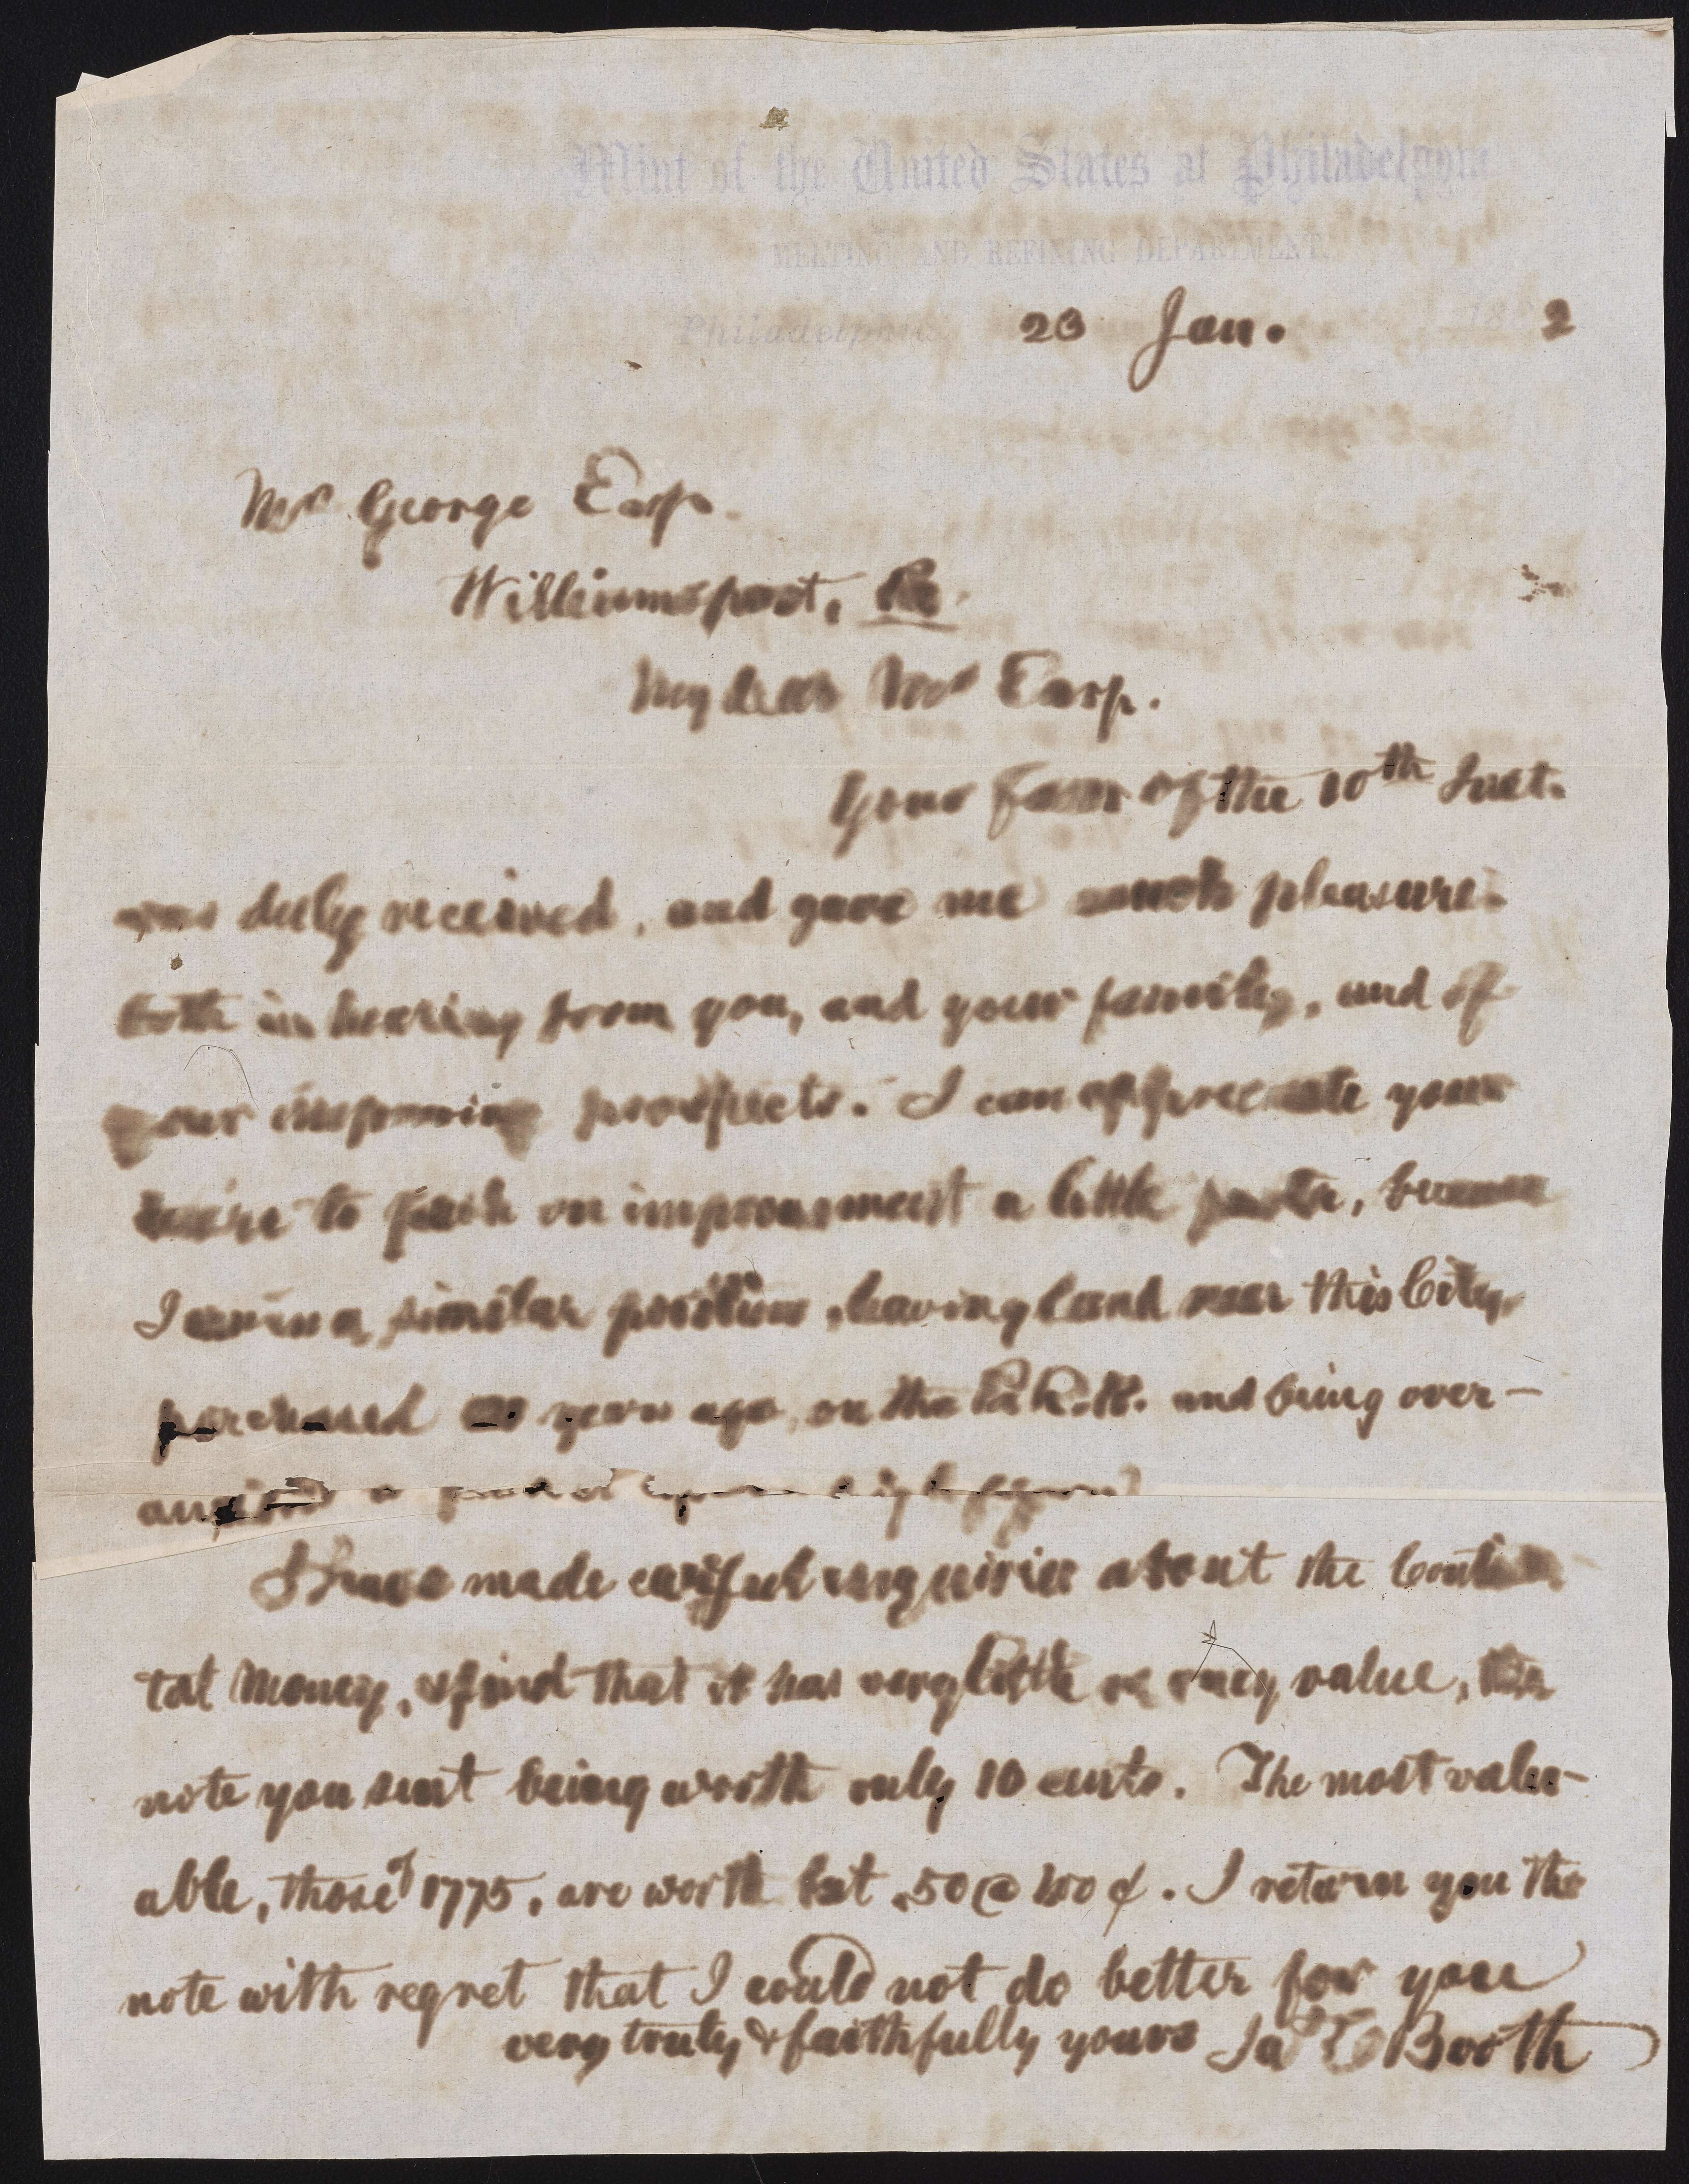 Mint of the United States at Philadelphia
MELTING AND REFINING DEPARTMENT.
Philadelphia 23 Jan. 18 2
Mr George Earp.
Williamsport, Pa.
My dear Mr Earp.
Your favor of the 10th Inst.
was duly received, and gave me much pleasure
both in hearing from you, and your family, and of
your improving prospects. I can appreciate your
desire to push on improvement a little faster, because
I am in a similar position, having land near this City,
purchased years ago, on the Pa R.R. and being over-
anxious a
I have made careful enquiries about the Continen
tal Money, & find that it has very little or any value, the
note you sent being worth only 10 cents. The most valu-
able, those of 1775, are worth but 50 @ ¢. I return you the
note with regret that I could not do better for you
very truly & faithfully yours Jas C Booth